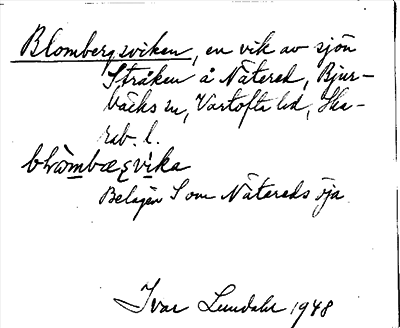 Blombergsviken, en vik av sjön
Stråken å Nätered, Bjur-
bäcks sn, Vartofta hd, Ska-
rab. l.
Belägen S om Nätereds öja
Ivar Lundahl 1948